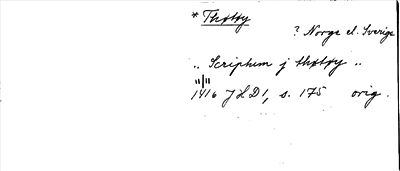 * Thøtøy
? Norge el. Sverige
.. Scriptum j thøtøy ..
"/"
1416 JHD1, s. 175 orig.